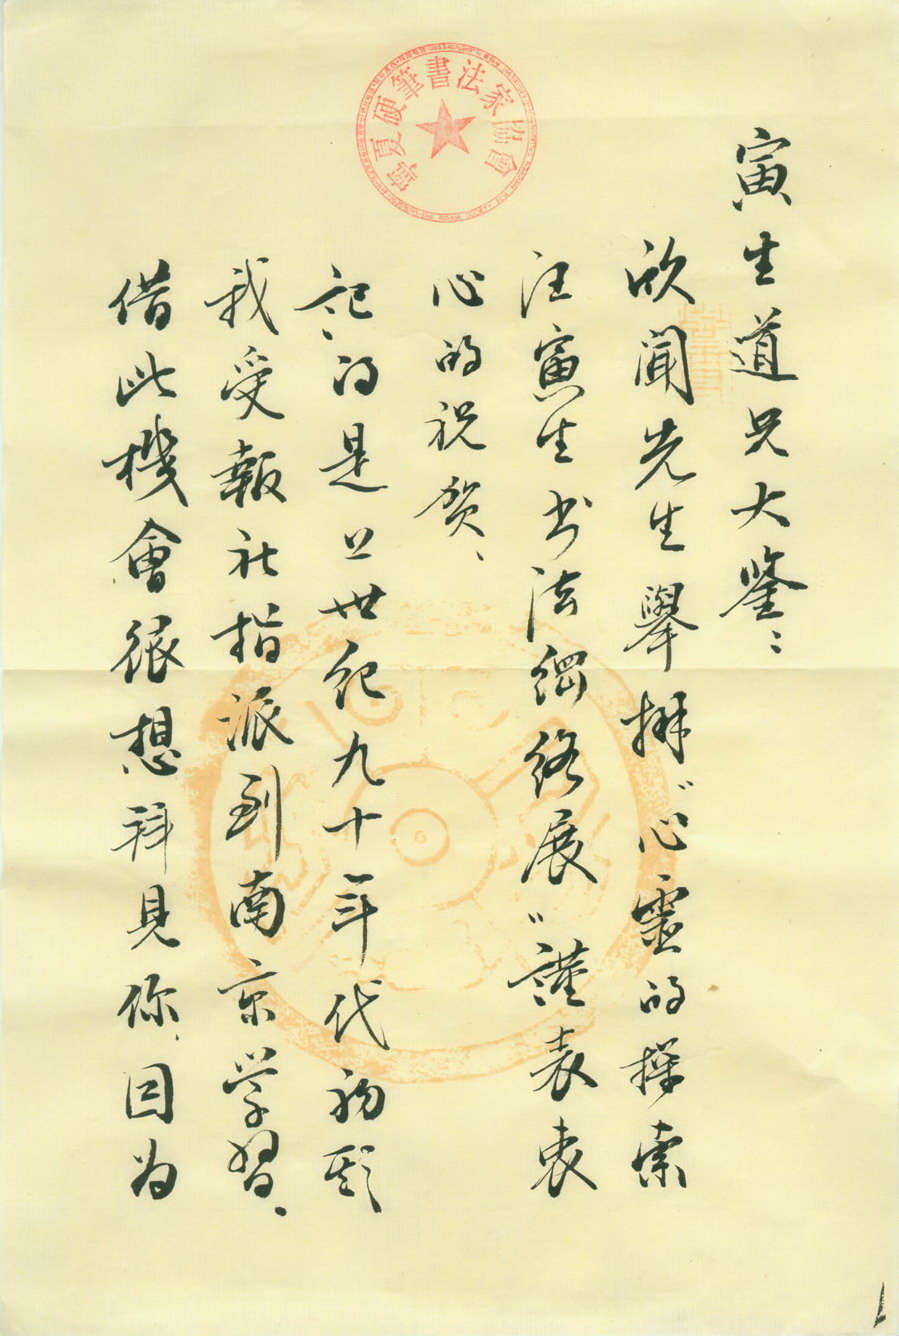 寧夏硬筆書法家協會
寅生道兄大鉴：
欣闻先生舉辦"心靈的探索
汪寅生书法網络展"謹表衷
心的祝贺、
记的是上世纪九十年代初期
我受報社指派到南京学習、
借此機會很想拜見你、因为